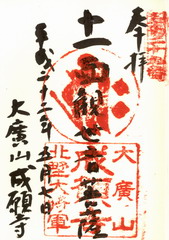 奉拝
十一面観世音菩薩
平成二十二年五月七日
大廣山成願寺
大廣山
成願寺
大将軍